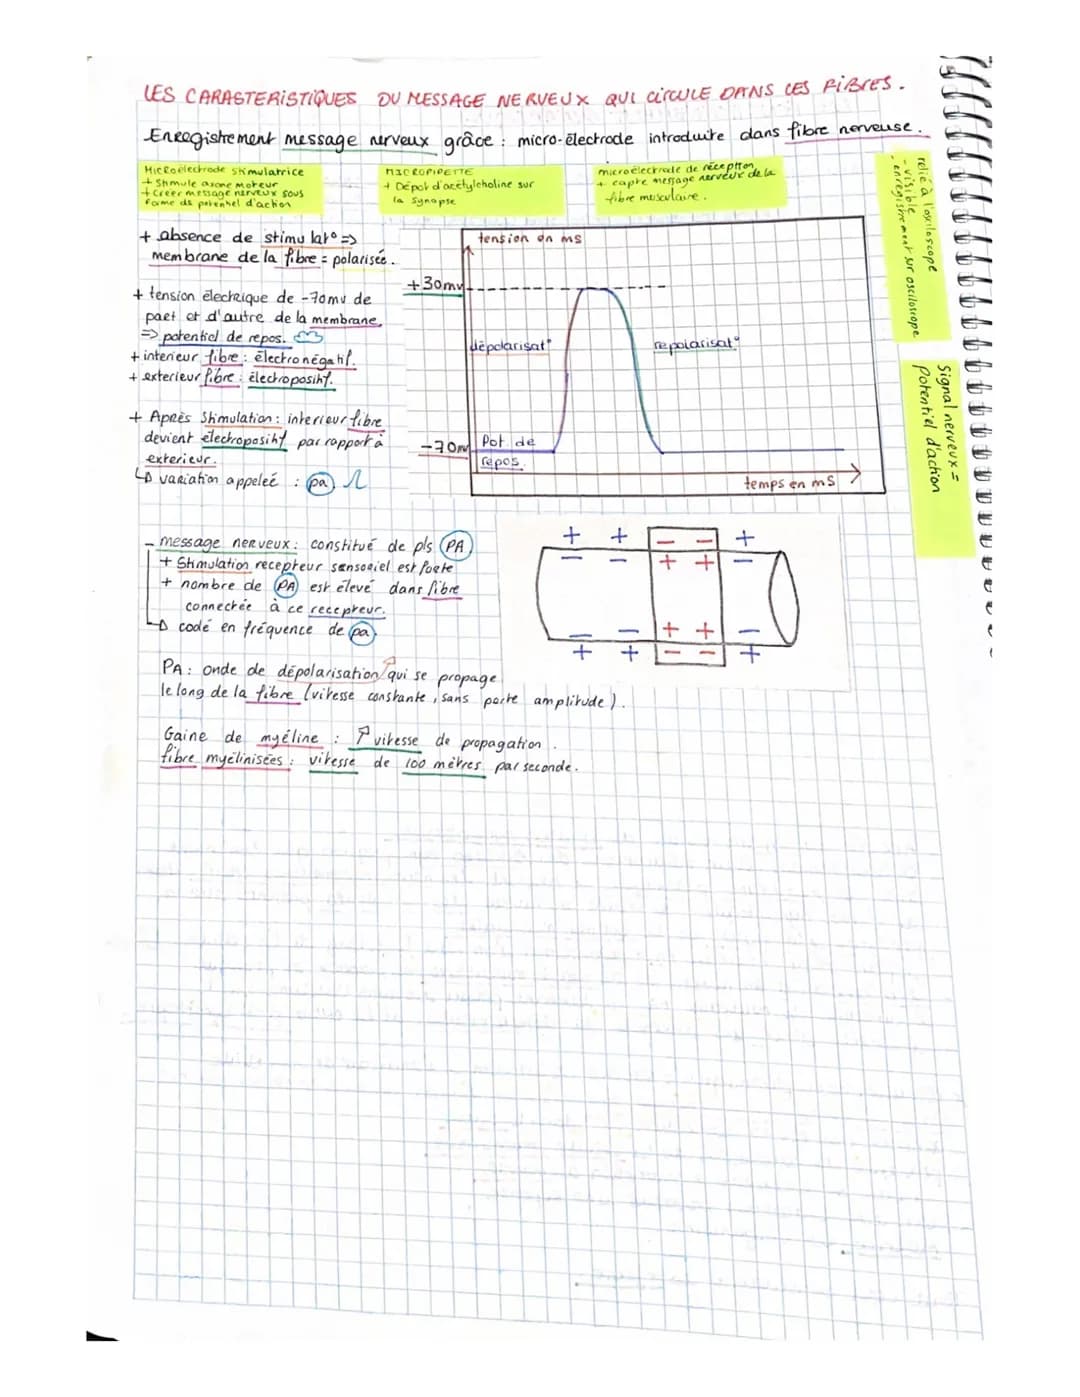 LES CARASTERISTIQUES DU MESSAGE NERVEUX QUI CIRCULE DANS LES FIBRES.
Enregistrement message nerveux grâce : micro-électrode introduite dans fibre nerveuse.
Microélectrode stimulatrice
+ Stimule axone moteur
+ Creer message nerveux sous
forme de potentiel d'action
MICROPIPETTE
+ Dépot d'acétylcholine sur
la synapse
microélectrode de réception
+ capte message nerveux de la
fibre musculaire.
relié à l'osciloscope
- visible
- enregistrement sur osciloscope
Signal nerveux =
Potentiel d'action
+ absence de stimulat° =>
membrane de la fibre = polarisée.
+ tension électrique de -70mv de
part et d'autre de la membrane
=> potentiel de repos.
+ interieur fibre : électronégatif.
+ exterieur fibre : électropositif.
+ Après stimulation : interieur fibre
devient électropositif par rapport à
exterieur.
↳ variation appeleé : pa
tension en ms
+30mv
dépolarisat°
repolarisat°
-70mv
Pot. de
repos.
temps en mS
- message nerveux : constitué de pls PA
+ Stimulation recepteur sensoriel est forte
+ nombre de PA est élevé dans fibre
connectée à ce recepteur.
↳ codé en fréquence de pa
+ + - - +
- - + + -
- - + + -
+ + - - +
PA : onde de dépolarisation qui se propage
le long de la fibre (vitesse constante, sans perte amplitude).
Gaine de myéline : ↗ vitesse de propagation.
fibre myélinisées : vitesse de 100 mètres par seconde.